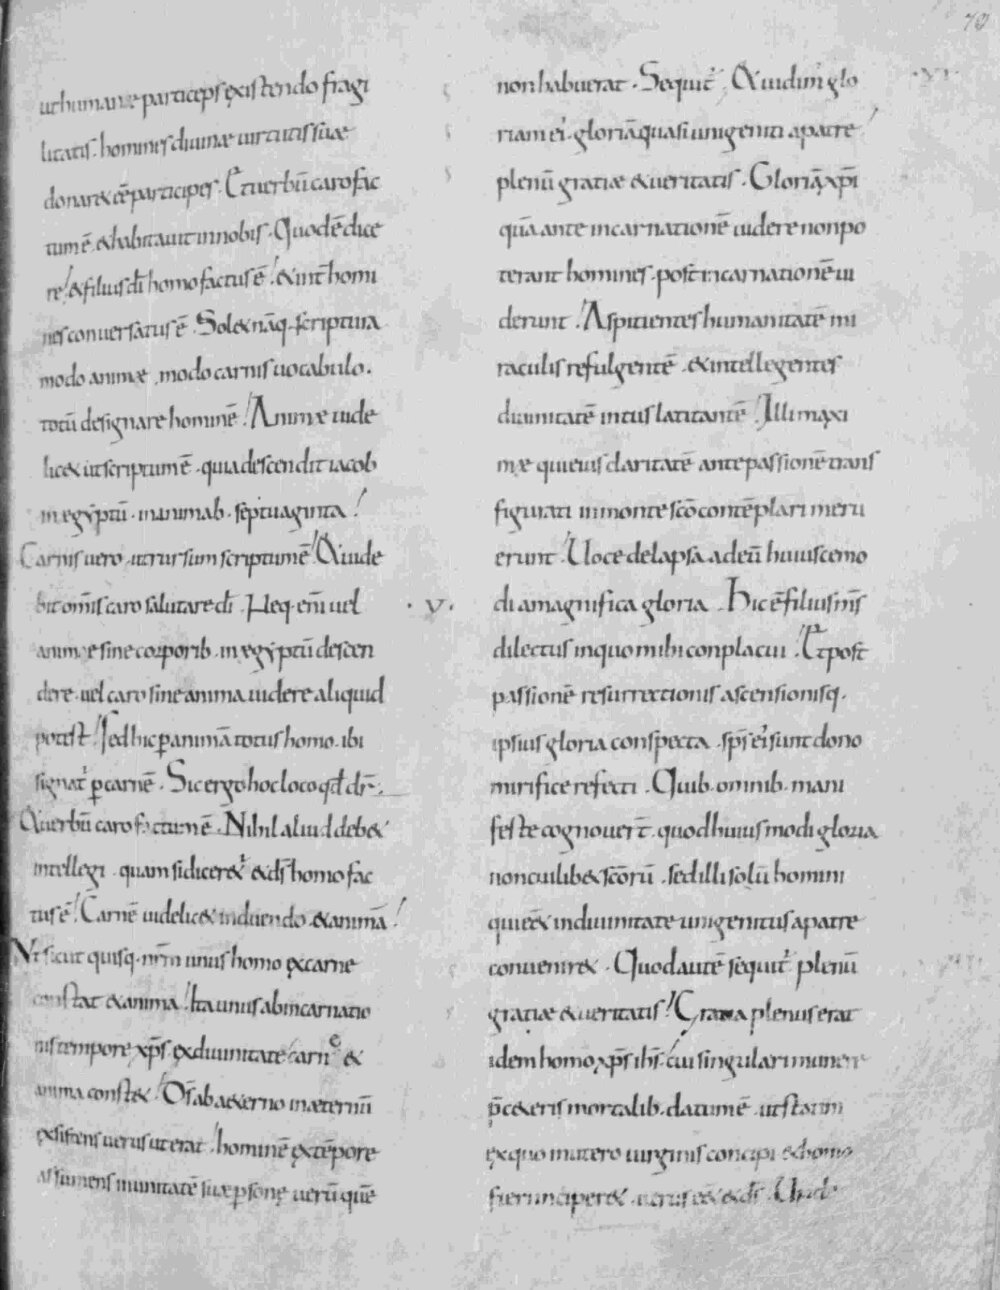 70
ut humanæ particeps existendo fragi
litatis · homines diuinæ uirtutis suæ
donaret eē participes · Et uerbū caro fac
tum ē · & habitauit in nobis · Quod ē dice
re · & filius dī homo factus ē · & int̄ homi
nes conuersatus ē · Sol& nāq· scriptura
modo animæ , modo carnis uocabulo ·
totū designare hominē · Animæ uide
lic& ut scriptum ē · quia descendit iacob
in egyptū · in animab· septuaginta ·
Carnis uero · ut rursum scriptum ē · & uide
bit omīs caro salutare dī · Neq· enī uel
animæ sine corporib· in egyptū descen
dere · uel caro sine anima uidere aliquid
potest · Sed hic p animā totus homo · ibi
signat̄ p carnē · Sic ergo hoc loco qd dr̄ ·
& uerbū caro factum ē · Nihil aliud deb&
intellegi · quam si dicer& · & ds̄ homo fac
tus ē · Carnē uidelic& induendo · & animā ·
Ut sicut quisq· nr̄m unus homo ex carne
constat & anima · Ita unus ab incarnatio
nis tempore xp̄s ex diuinitate carne &
anima const& · Ds̄ ab aeterno in æternū
existens uerus ut erat · hominē ex tēpore
assumens in unitatē suæ psonę uerū quē
· V ·
non habuerat · Sequit̄ · & uidim' glo
riam ei' · gloriā quasi unigeniti a patre
plenū gratiæ & ueritatis · Gloriā xp̄i
quā ante incarnationē uidere non po
terant homines · post incarnationē ui
derunt · Aspitientes humanitatē mi
raculis refulgentē · & intellegentes
diuinitatē intus latitantē · Illi maxi
mæ qui eius claritatē ante passionē trans
figurati in monte sc̄o contēplari meru
erunt · Uoce delapsa ad eū huiuscemo
di a magnifica gloria · Hic ē filius m̄s
dilectus in quo mihi conplacui · Et post
passionē resurrectionis ascensionisq·
ipsius gloria conspecta · sps̄ ei' sunt dono
mirifice refecti · Quib· omnib· mani
feste cognouer̄t · quod huius modi gloria
non cuilib& scōrū · sed illi solū homini
qui eēt in diuinitate unigenitus a patre
conuenir& · Quod autē sequit̄ plenū
gratiæ & ueritatis · Gratia plenus erat
idem homo xp̄s ihs̄ · cui singulari munere
p̄ ceteris mortalib· datum ē · ut statim
ex quo in utero uirginis concipi & homo
fieri inciper& · uerus eēt & ds̄ · Unde
· VI ·